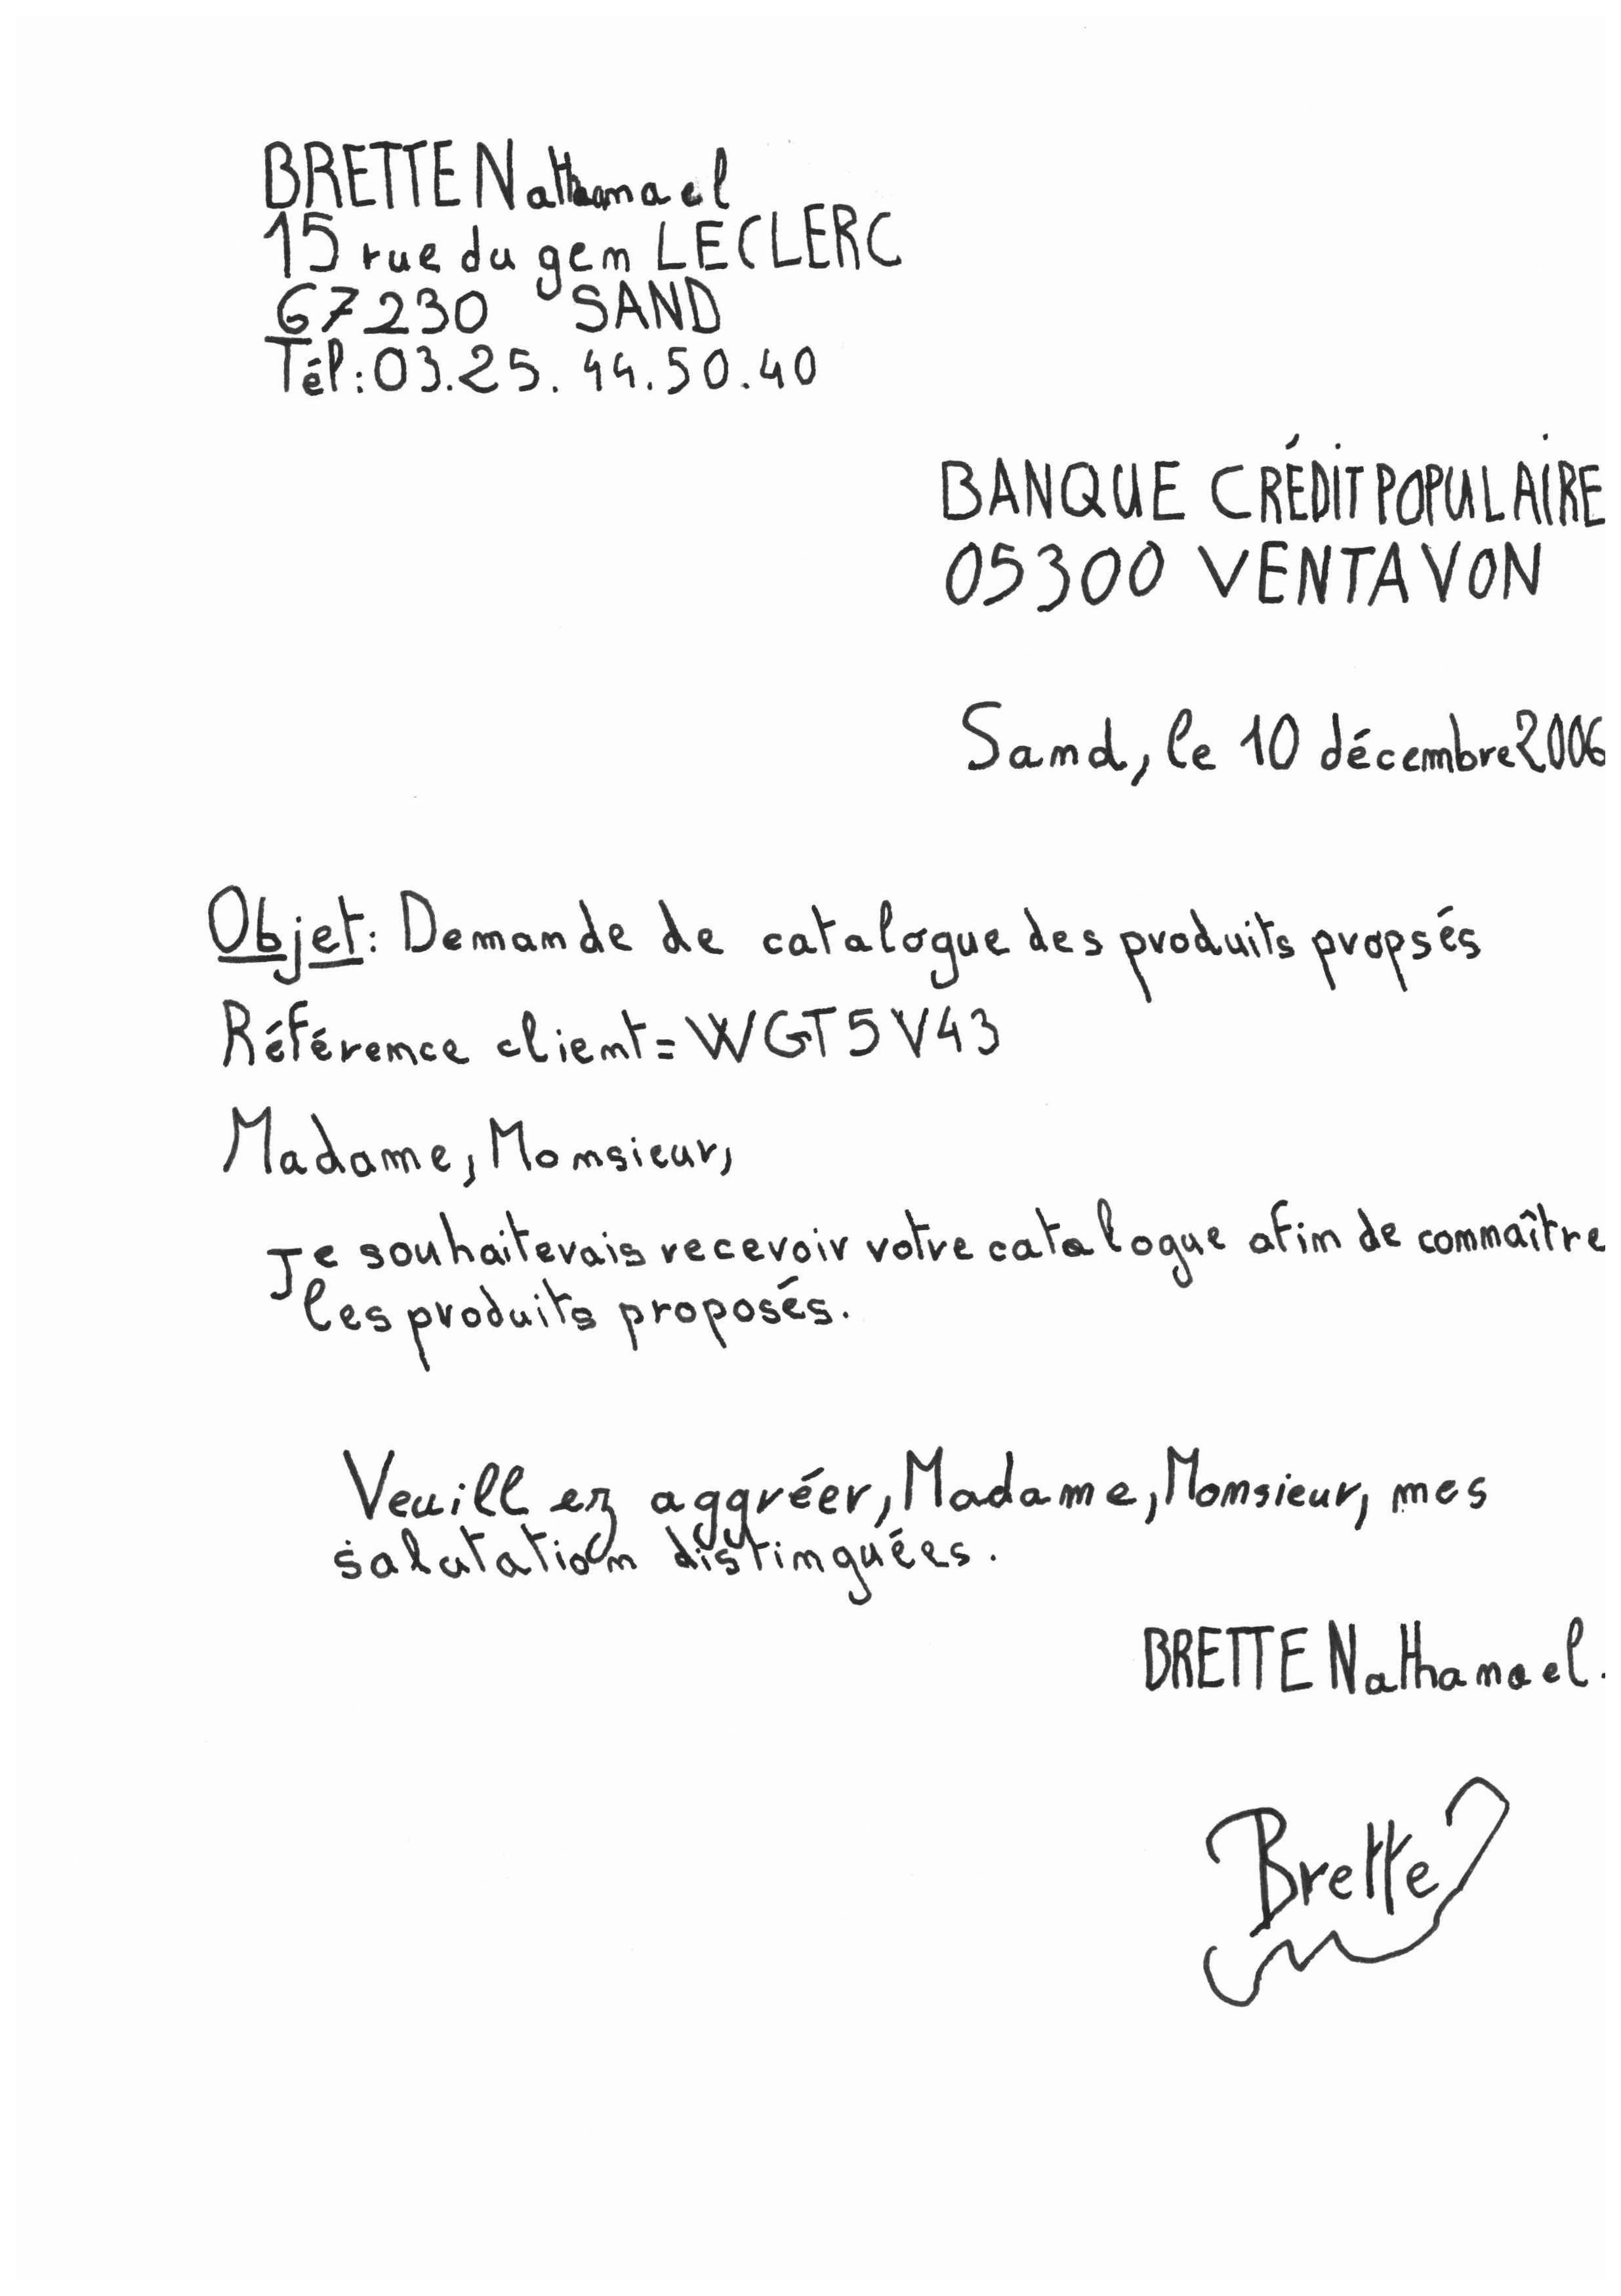 BRETTE Nathanael
15 rue du gen LECLERC
67230 SAND
Tél: 03.25.44.50.40
BANQUE CRÉDIT POPULAIRE
05300 VENTAVON
Sand, le 10 décembre 2006
Objet: Demande de catalogue des produits propsés
Référence client = WGT5V43
Madame, Monsieur,
Je souhaiterais recevoir votre catalogue afin de connaître
les produits proposés.
Veuillez aggréer, Madame, Monsieur, mes
salutation distinguées.
BRETTE Nathanael.
Brette